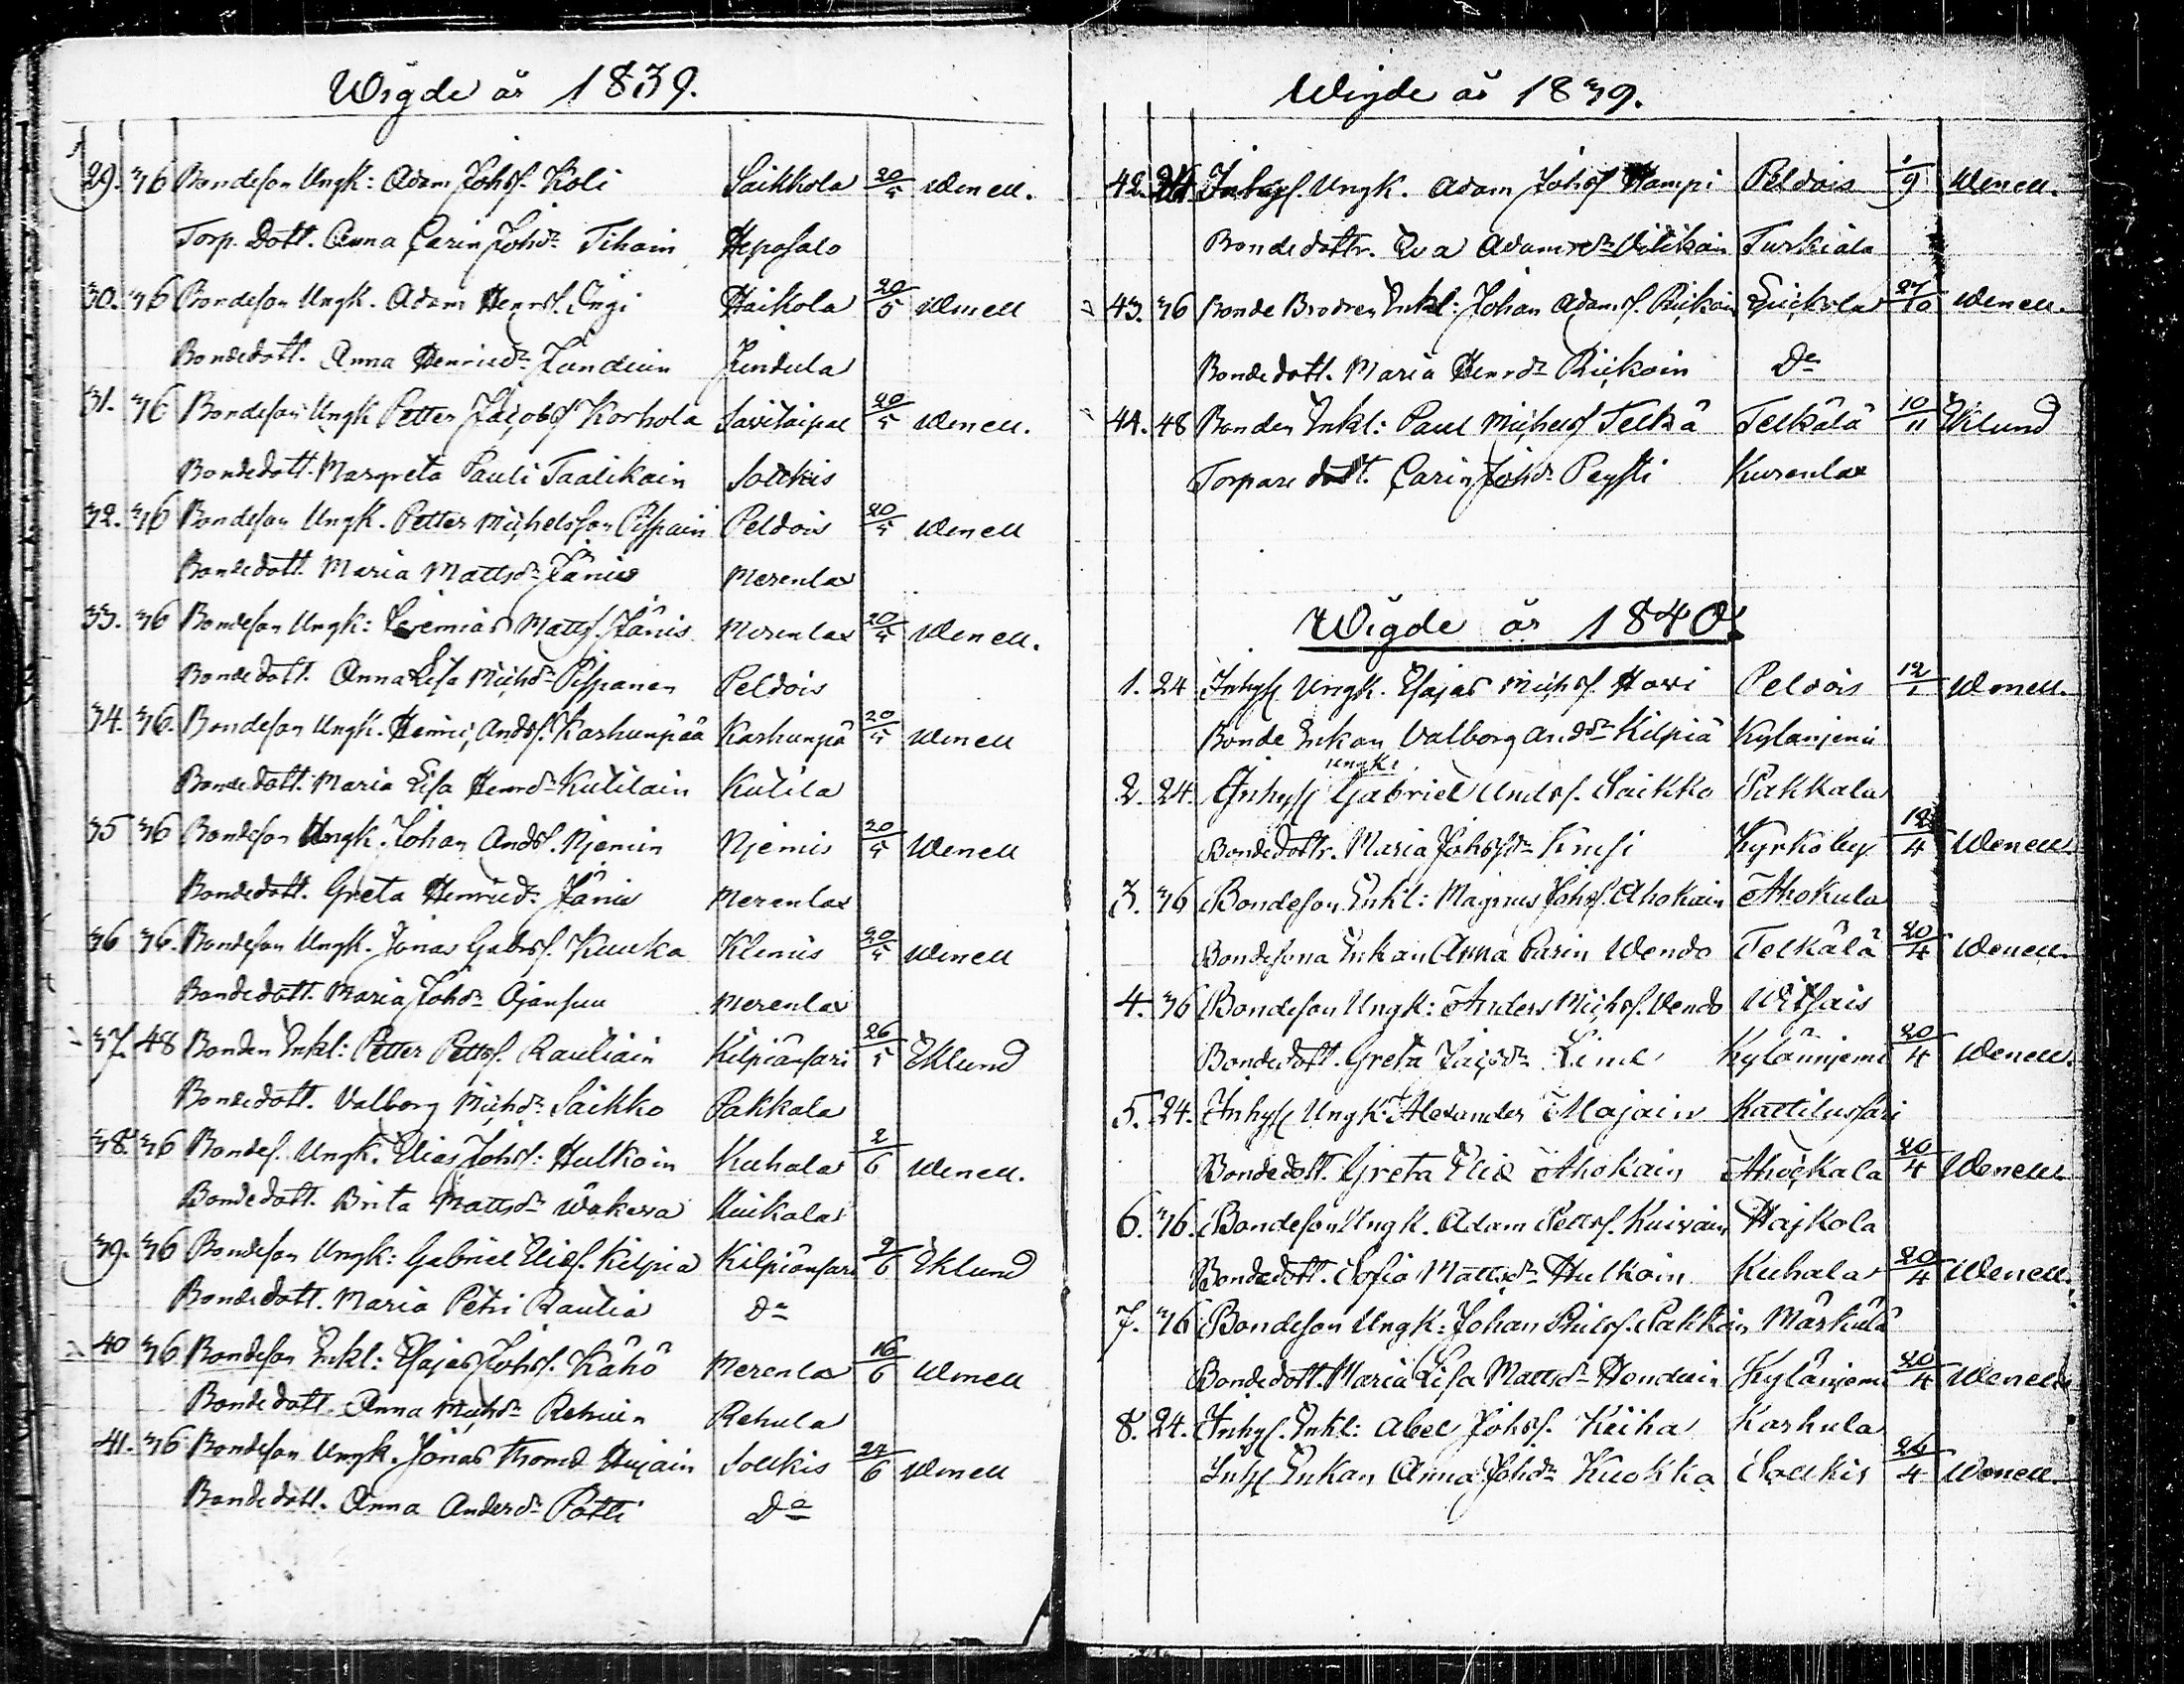 Wigde år 1839.
29. 36 Bondeson Ungk: Adam Johsf. Koli Saikkola 20/5 Wenell.
Torp. dott. Anna Carin Johdr Tihain Heposalo
30. 36 Bondeson Ungk. Adam Henrsf. Ingi Haikola 20/5 Wenell
Bondedott. Anna Henricdr Jundein Jundula
31. 36 Bondeson Ungk Petter Jacobsf Korhola Savitaipal 20/5 Wenell.
Bondedott. Margreta Pauli Taalikain Solkis
32. 36 Bondeson Ungk. Petter Michelsson Pispain Peldois 20/5 Wenell
Bondedott. Maria Mattsdr Jänis Merenlax
33. 36 Bondeson Ungk: Jeremias Mattsf. Jänis Merenlax 20/5 Wenell.
Bondedott. Anna Lisa Michdr Pispanen Peldois
34. 36. Bondeson Ungk. Henric Andsf. Karhunpää Karhunpä 20/5 Wenell
Bondedott. Maria Lisa Henrdr Kutilain Kutila
35 36 Bondeson Ungk. Johan Andsf. Njemin Njemis 20/5 Wenell
Bondedott. Greta Henricdr Jänis Merenlax
36 36. Bondeson Ungk. Jonas Gabrsf. Kuuka Klemis 20/5 Wenell
Bondedott. Maria Johdr Ojansuu Merenlax
37. 48 Bonden Enkl: Petter Pettsf. Rautiain Kilpiänsari 26/5 Eklund
Bondedott. Valborg Michdr Saikko Pakkala
38. 36 Bondes. Ungk. Elias Johsf: Hulkoin Kuhala 2/6 Wenell.
Bondedott. Brita Mattsdr Wäkeva Kuikala
39. 36 Bondeson Ungk: Gabriel Eliæsf. Kilpiä Kilpiänsari 2/6 Eklund
Bondedott. Maria Petri Rautia Do
40 36 Bondeson Enkl: Esajas Johsf. Kähö Merenlax 16/6 Wenell
Bondedott. Anna Michdr Rehuin Rehula
41. 36 Bondeson Ungk. Jonas Thomæ Hujain Solkis 24/6 Wenell
Bondedott. Anna Andersdr Potti Do
Wigde år 1839.
42. 24. Inhysf. Ungk. Adam Johsf Hampi Peldois 1/9 Wenell.
Bondedottr. Eva Adamsdr Vitikain Turkiala
43. 36 Bonde Brodren Enkl: Johan Adamsf. Rickoin 27/10 Wenell.
Bondedott. Maria Henrdr Rickoin Do
44. 48 Bonden Enkl: Paul Michelsf Telkä Telkälä 10/11 Eklund
Torpare dott. Carin Johdr Peysti Kurenlax
Wigde år 1840.
1. 24 Inhysf Ungk. Esajas Michsf. Hovi Peldois 12/1 Wenell.
Bonde Enkan Valborg Andsdr Kilpiä Kylänjemi
2. 24. Inhysf Ungk. Gabriel Andsf. Saikko Pakkala
Bondedottr. Maria Johssdr Krusi Kyrkoby 12/4 Wenell
3. 36 Bondeson Enkl: Magnus Johsf. Ahokain Ahokula
Bondesona Enkan Anna Carin Wendo Telkälä 20/4 Wenell.
4. 36 Bondeson Ungk: Anders Michsf. Vendo Wissais
Bondedott. Greta Jacobdr Kylännjemi 20/4 Wenell.
5. 24. Inhysf Ungk: Alexander Majain Kattilussari
Bondedott. Greta Eliæ Ahokain Ahokkala 20/4 Wenell
6. 36. Bondeson Ungk. Adam Pettsf. Kuivain Hajkola
Bondedott. Sofia Mattsdr Hulkoin Kuhala 20/4 Wenell.
7. 36 Bondeson Ungk: Johan Philsf. Pakkain Märkälä
Bondedott. Maria Lisa Mattsdr Honduin Kylänjemi 20/4 Wenell
8. 24. Inhysf. Enkl: Abel Johsf. Keiha Karhula
Inhysf Enkan Anna Johdr Kuokka Solkis 26/4 Wenell